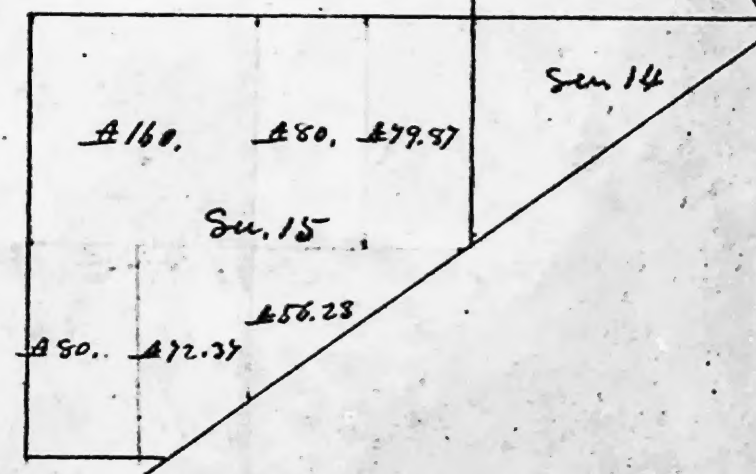 Sec 14
A 160. A 80. A 79.87
Sec. 15
A 56.28
A 80. A 72.37